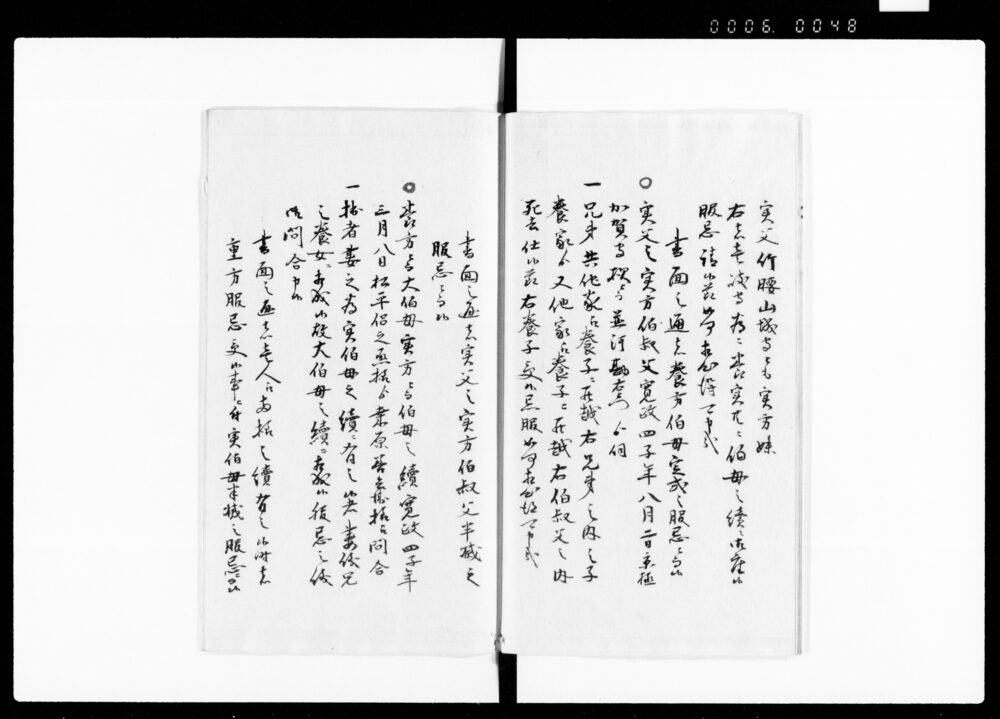 0006. 0048
実父竹腰山城守ゟも実方妹
右志摩守為ニハ養実共ニ伯母之続ニ御座候
服忌請候節如何相心得可申哉
書面之通者養方伯母定式之服忌ニ而候
○ 実父之実方伯叔父寛政四子年八月二日京極
加賀守様ゟ並河勘右衛門ヲ以伺
一 兄弟共他家江養子ニ罷越右兄弟之内之子
養家ゟ又他家江養子ニ罷越右伯叔父之内
死去仕候節右養子受候忌服如何相心得可申哉
書面之通者実父之実方伯叔父半減之
服忌ニ而候
○ 養方ニ而大伯母実方ニ而伯母之続寛政四子年
三月八日松平侶之丞様ゟ桑原善兵衛様江問合
一 拙者妻之為実伯母之続ニ有之候者妻従兄
之養女ニ相成候故大伯母之続ニ相成候服忌之儀
御問合申候
書面之通者壱人江両様之続有之候時者
重方服忌受候事ニ付実伯母半減之服忌ニ而候